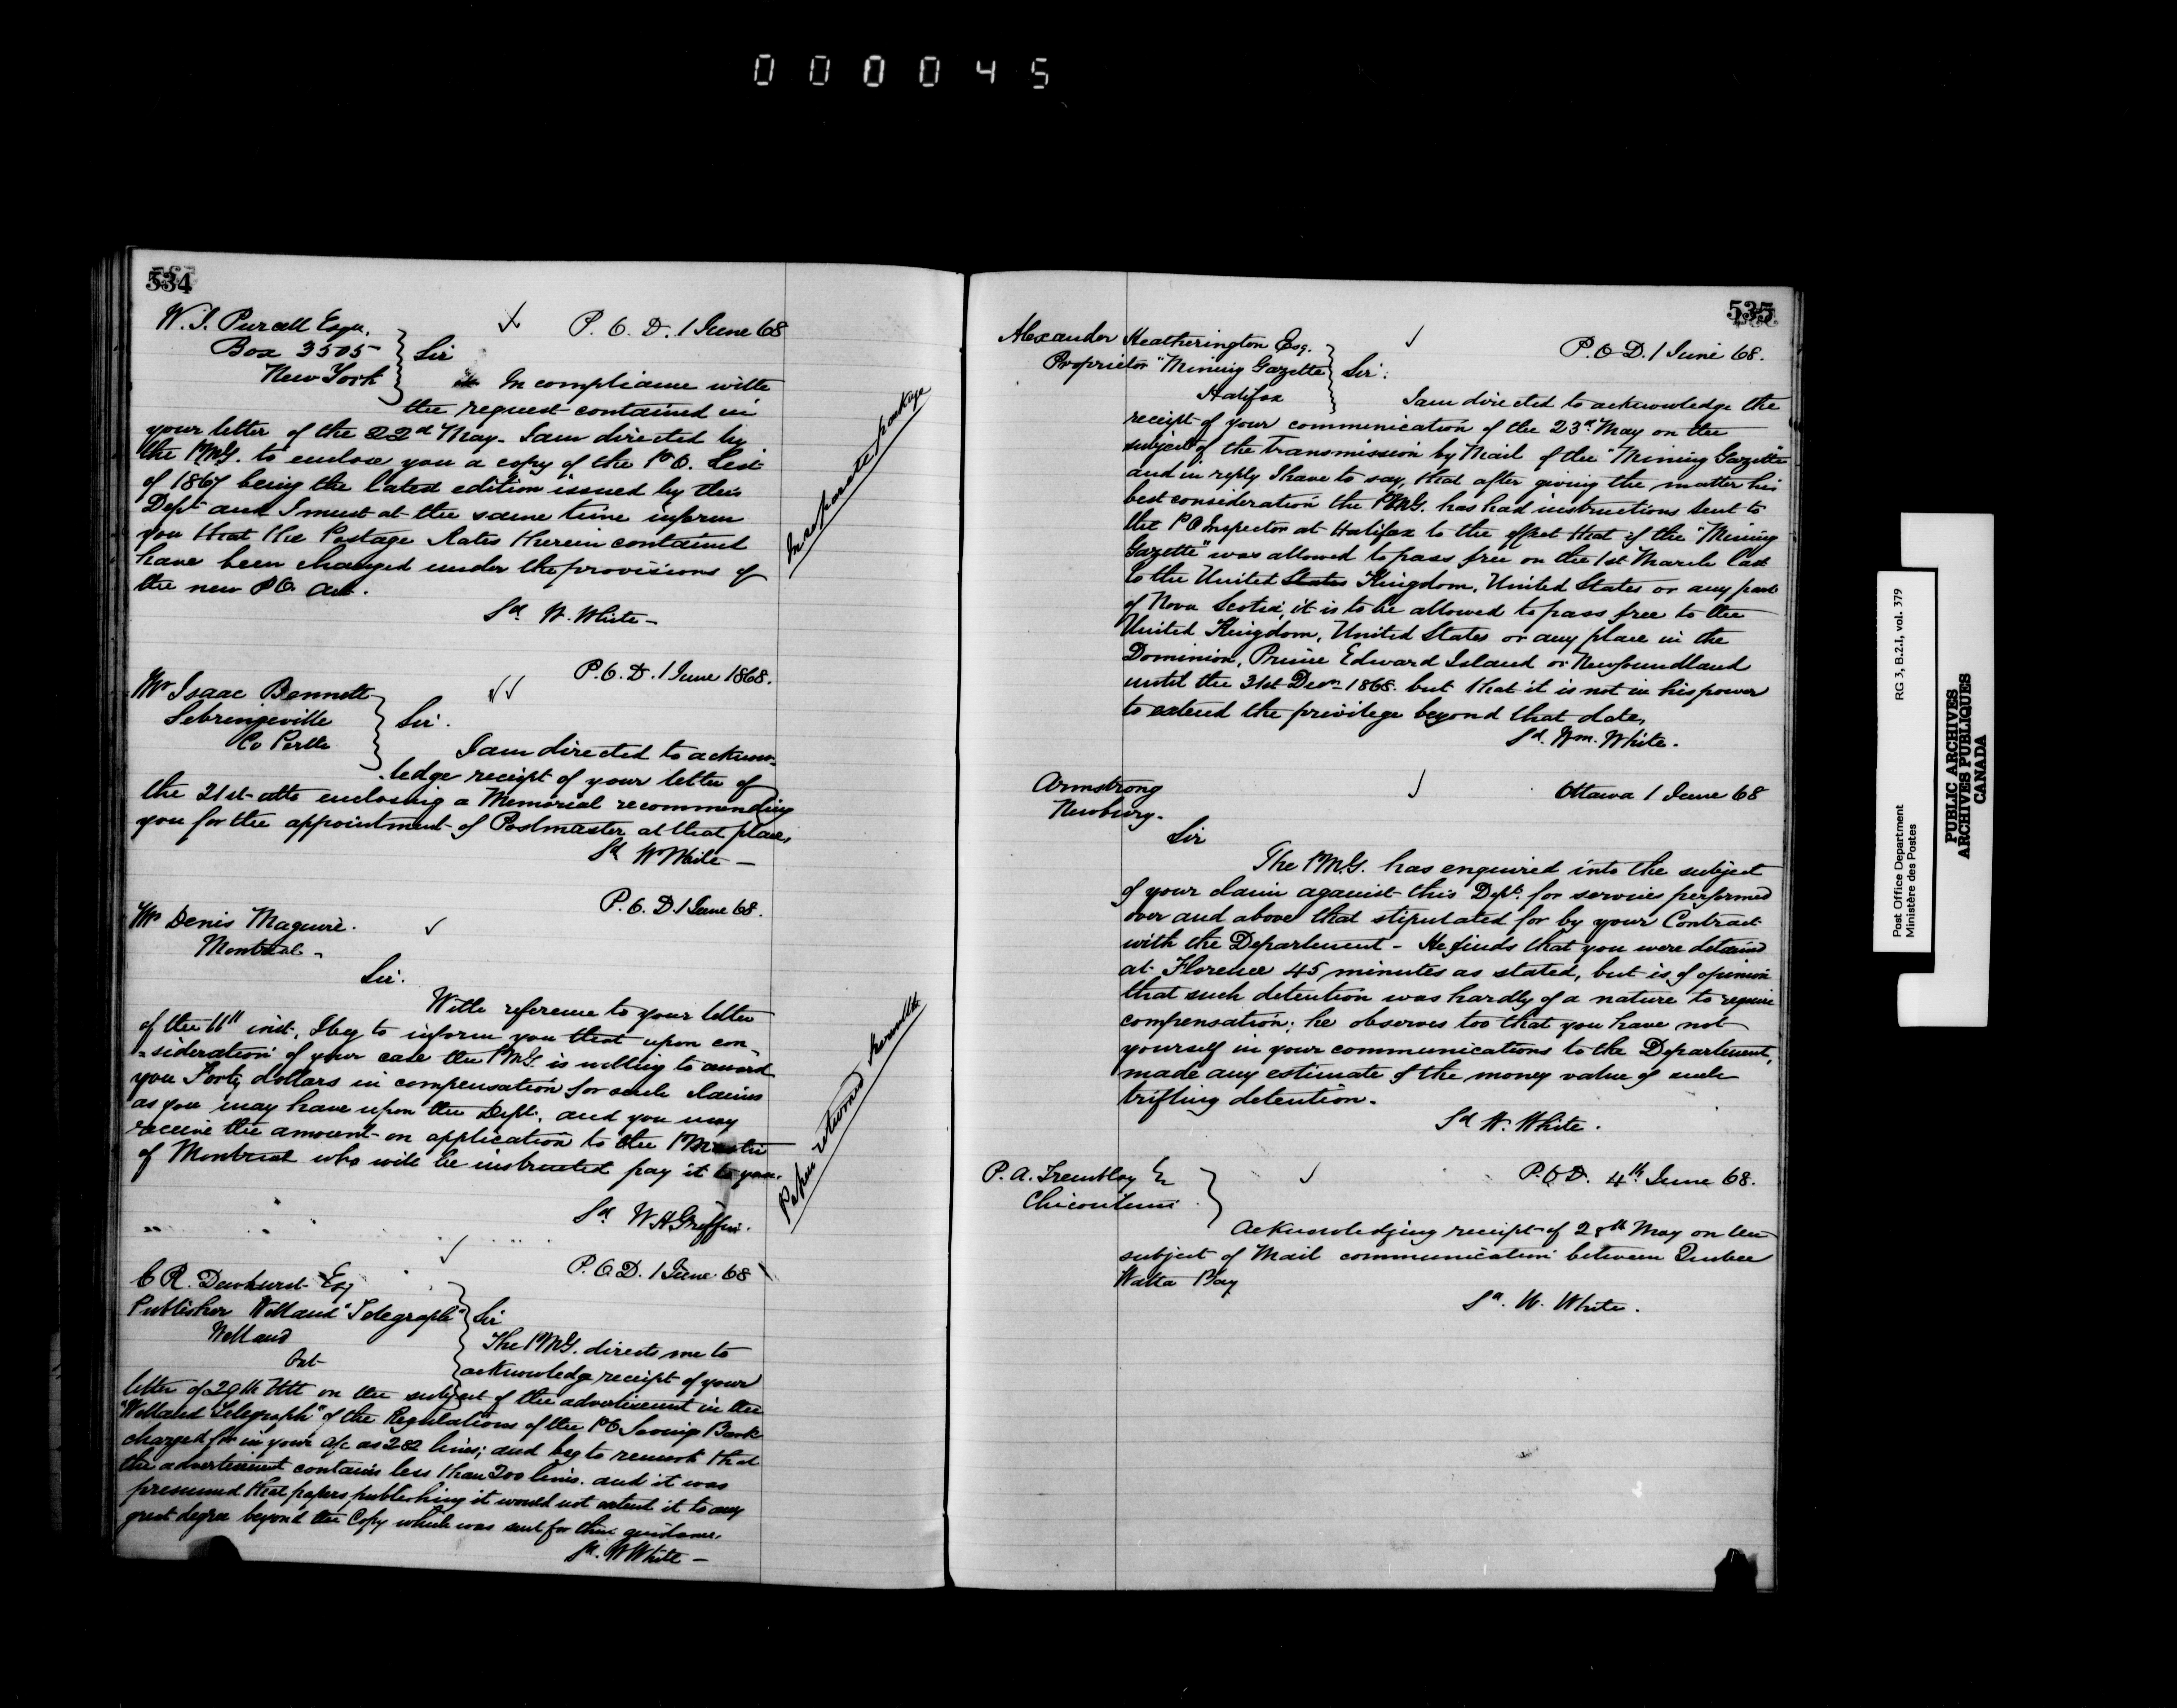 000045
534
W. I. Purcell Esqr.
Box 3505
New York
P.O.D. 1 June 68
Sir
In compliance with
the request contained in
your letter of the 22d May. I am directed by
the PMG. to enclose you a copy of the P.O. List
of 1867 being the latest edition issued by this
Dept and I must at the same time inform
you that the Postage Rates therein contained
have been changed under the provisions of
the new P.O. Act.
Sd W. White -
In separate package
P.O.D. 1 June 1868.
Mr Isaac Bennett
Sebringville
Co Perth
Sir.
I am directed to acknow-
ledge receipt of your letter of
the 21st ulto enclosing a Memorial recommending
you for the appointment of Postmaster at that place.
Sd W White -
P.O.D. 1 June 68.
Mr Denis Maguire.
Montreal -
Sir.
With reference to your letter
of the 11th inst. I beg to inform you that upon con-
=sideration of your case the PMG. is willing to award
you Forty dollars in compensation for such claims
as you may have upon the Dept. and you may
receive the amount on application to the PMaster
of Montreal who will be instructed pay it to you.
Sd W H Griffin.
Paper returned herewith
P.O.D. 1 June 68
C R. Dewhurst Esq
Publisher Welland "Telegraph"
Welland
Ont
Sir
The PMG. directs me to
acknowledge receipt of your
letter of 29th Ult on the subject of the advertisement in the
"Welland Telegraph" of the Regulations of the PO Savings Bank
charged for in your a/c as 282 lines; and beg to remark that
the advertisement contains less than 200 lines. and it was
presumed that papers publishing it would not extend it to any
great degree beyond the Copy which was sent for their guidance.
Sd. W White -
535
Alexander Heatherington Esq.
Proprietor "Mining Gazette
Halifax
P.O.D. 1 June 68.
Sir.
I am directed to acknowledge the
receipt of your communication of the 23d. May on the
subject of the transmission by Mail of the "Mining Gazette"
and in reply I have to say, that after giving the matter his
best consideration the PMG. has had instructions sent to
the P O Inspector at Halifax to the effect that if the "Mining
Gazette" was allowed to pass free on the 1st March last
to the United States Kingdom, United States or any part
of Nova Scotia, it is to be allowed to pass free to the
United Kingdom, United States or any place in the
Dominion, Prince Edward Island or Newfoundland
until the 31st Decr 1868. but that it is not in his power
to extend the privilege beyond that date.
Sd. Wm. White.
Armstrong
Newbury.
Ottawa 1 June 68
Sir
The PMG. has enquired into the subject
of your claim against this Dept. for services performed
over and above that stipulated for by your Contract
with the Department - He finds that you were detained
at Florence 45 minutes as stated, but is of opinion
that such detention was hardly of a nature to require
compensation; he observes too that you have not
yourself in your communications to the Department,
made any estimate of the money value of such
trifling detention.
Sd W. White.
P. A. Tremblay Er
Chicoutimi
P.O.D. 4th June 68.
Acknowledging receipt of 28th May on the
subject of Mail communication between Quebec
Watta Bay
Sd. W. White.
Post Office Department
Ministère des Postes
RG 3, B.2.I, vol. 379
PUBLIC ARCHIVES
ARCHIVES PUBLIQUES
CANADA